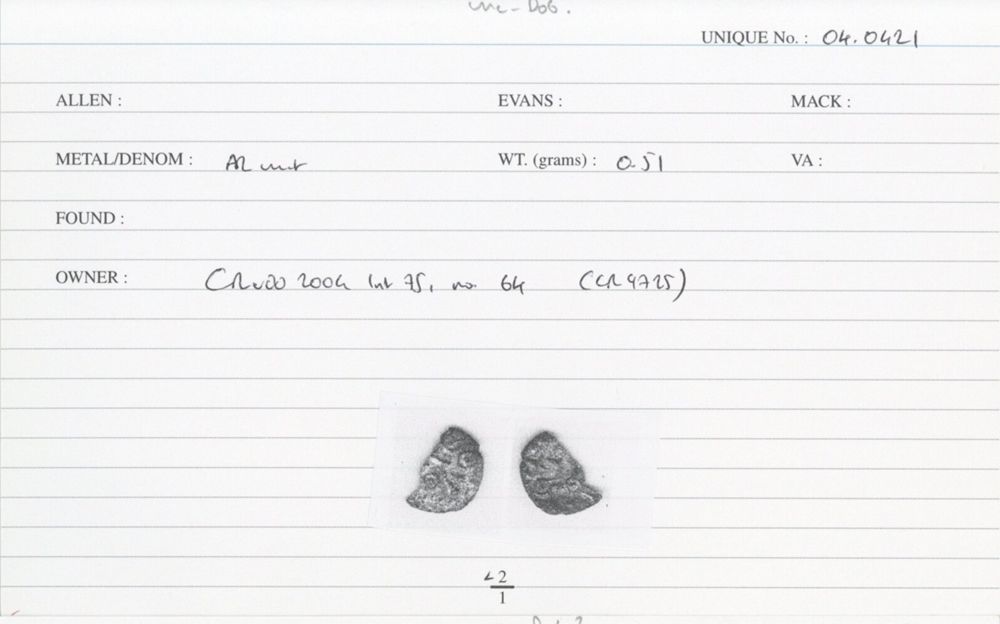 UNIQUE No. : 04.0421
ALLEN : EVANS : MACK :
METAL/DENOM : AR unit WT. (grams) : 0.51 VA :
FOUND :
OWNER : 2004 list 75, no. 64 (CR 9725)
2
1